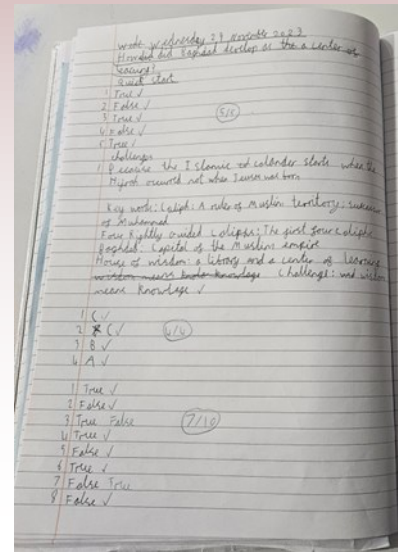 Wednesday 29 November 2023
How did Baghdad develop as a center of
learning?
Quick start
1 True ✓
2 False ✓
3 True ✓
4 False ✓
5 True ✓
5/5
challenge
Because the Islamic calander starts when the
Hijrah occured not when
Key work: Caliph: A ruler of Muslim territory; successor
of Muhammad
Four Rightly Guided Caliphs: The first four caliphs
Baghdad: Capital of the Muslim empire
House of wisdom: a library and a center of learning
Challenge: wisdom
means knowledge ✓
1 C ✓
2 C ✓
3 B ✓
4 A ✓
4/4
1 True ✓
2 False ✓
3 True False
4 True ✓
5 False ✓
6 True ✓
7 False True
8 False ✓
7/10